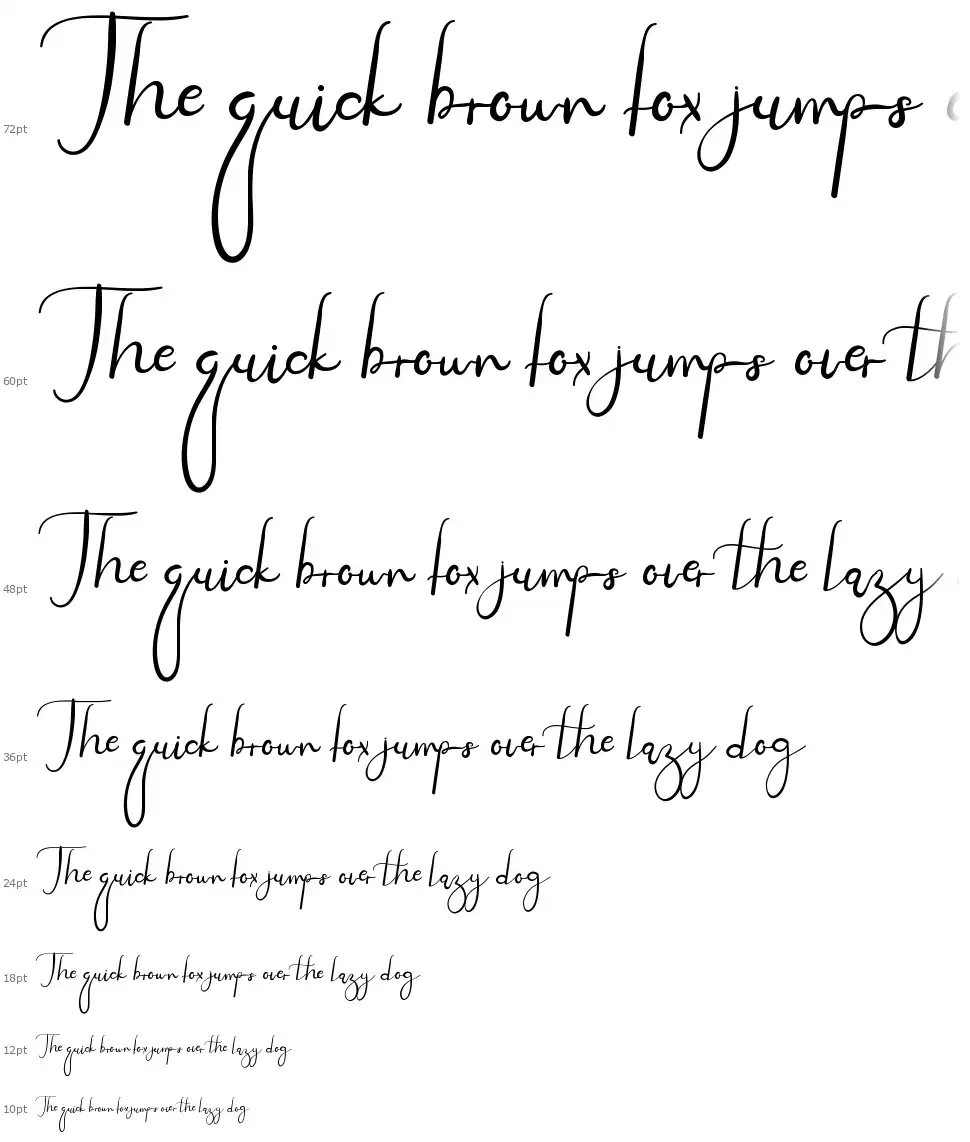 72pt The quick brown fox jumps
60pt The quick brown fox jumps over th
48pt The quick brown fox jumps over the lazy
36pt The quick brown fox jumps over the lazy dog
24pt The quick brown fox jumps over the lazy dog
18pt The quick brown fox jumps over the lazy dog
12pt The quick brown fox jumps over the lazy dog
10pt The quick brown fox jumps over the lazy dog